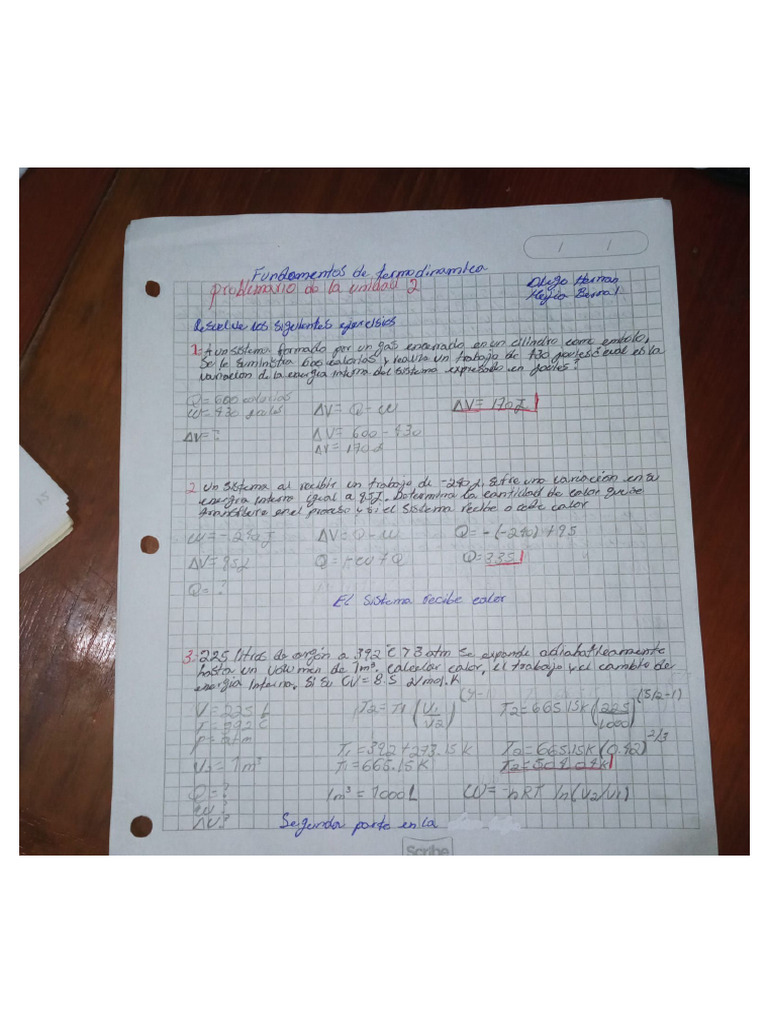 Fundamentos de termodinamica
problemario de la unidad 2
Diego Hernan
Mejia Bernal
Resuelve los sigeientes ejercisios
1: A un sistema formado por un gas encerrado en un cilindro como embolo,
Se le suministra 600 calorias y realiza un trabajo de 430 joules ¿cual es la
variación de la energia interna del sistema expresado en joules?
Q = 600 calorias
W = 430 joules
ΔV = ?
ΔV = Q - W
ΔV = 600 - 430
ΔV = 170 J
ΔV = 170 J
2 Un sistema al recibir un trabajo de -240 J, sufre una variación en su
energia interna igual a 95 J. Determina la cantidad de calor que se
transfiere en el proceso y si el sistema recibe o cede calor
W = -240 J
ΔV = 95 J
Q = ?
ΔV = Q - W
Q = -W + Q
Q = -(-240) + 95
Q = 335
El sistema recibe calor
3: 225 litros de argón a 392°C y 3 atm se expande adiabaticamente
hasta un volumen de 1m³. Calcular calor, el trabajo y el cambio de
energia interna. Si su CV = 8.5 J/mol.K
V = 225 L
T = 392 C
P = 3 atm
V2 = 1m³
Q = ?
W?
ΔV?
T2 = T1 (V1/V2)^(γ-1)
T1 = 392 + 273.15 K
T1 = 665.15 K
1m³ = 1000 L
T2 = 665.15K (225/1000)^(5/2-1)
T2 = 665.15K (0.42)^2/3
T2 = 504.04K
W = -nRT ln(V2/V1)
Segunda parte en la
Scribe